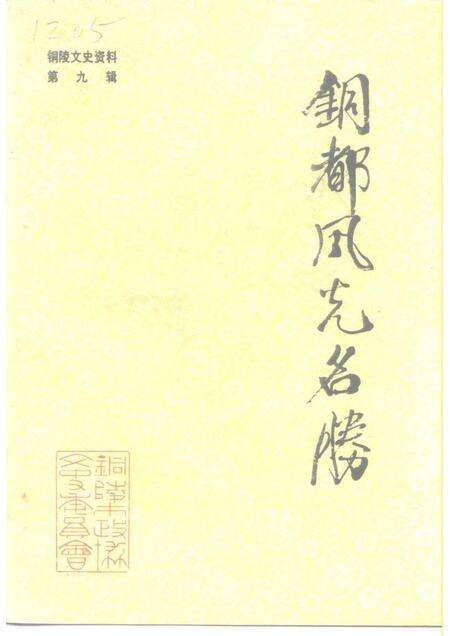 1205
铜陵文史资料
第九辑
銅都风光名勝
銅陵市政协
文史委員會